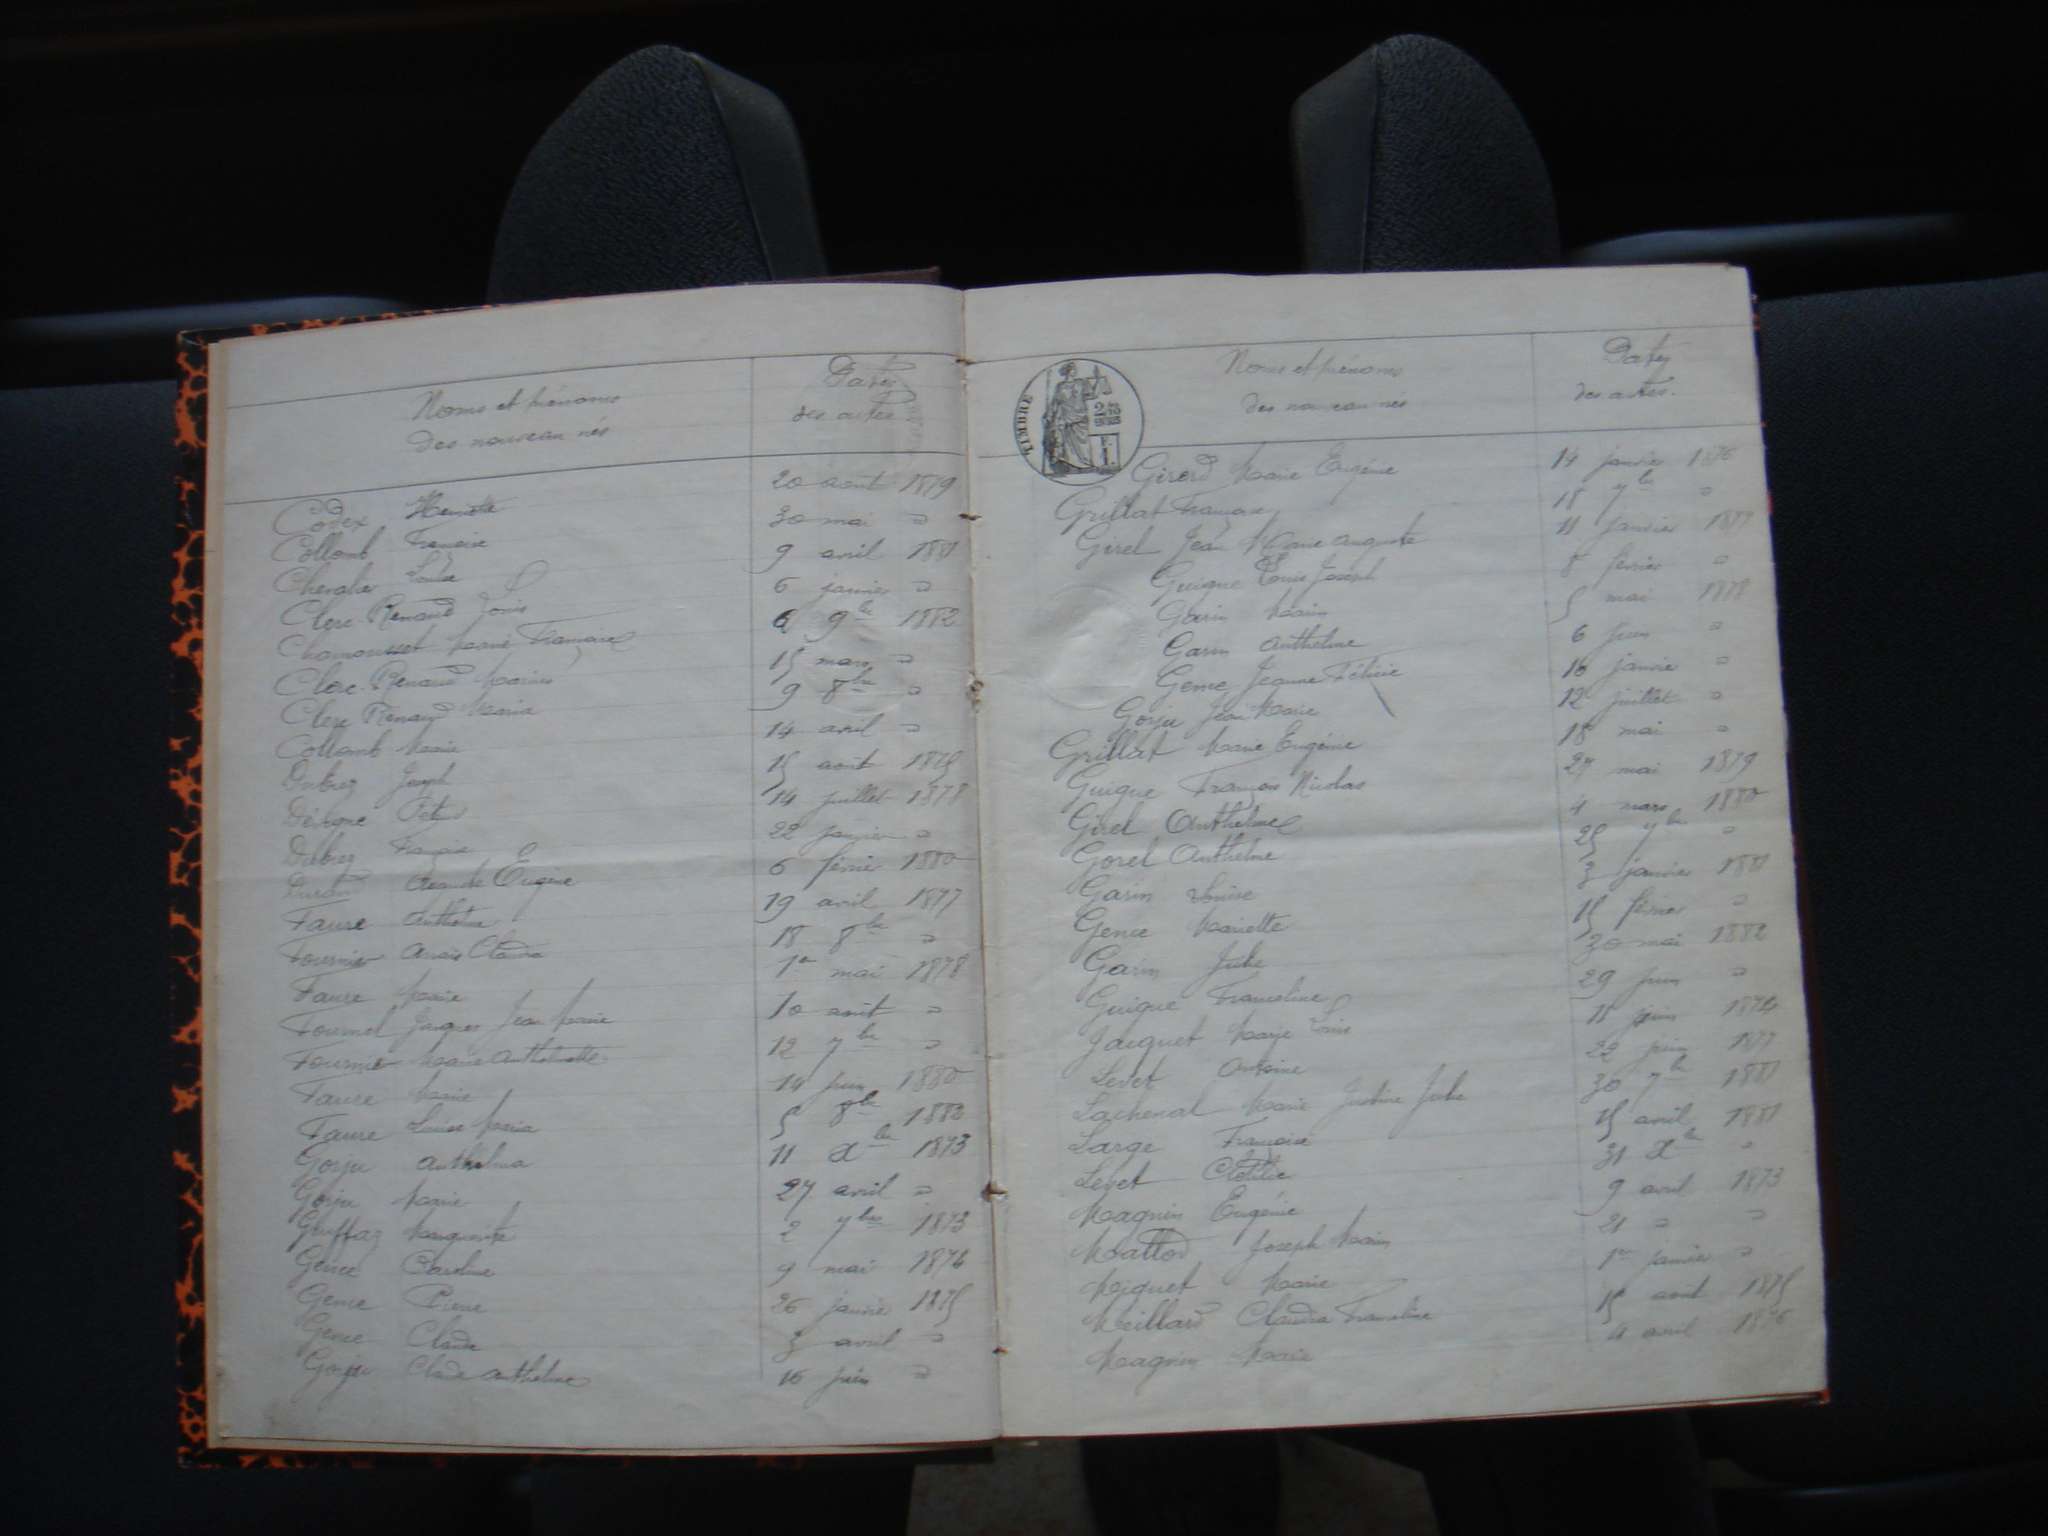 Noms et prénoms
des nouveau nés
Dates
des actes
Codex Henriette 20 août 1879
Collomb Françoise 30 mai "
Chevalier Louise 9 avril 1881
Clerc-Renaud Louis 6 janvier "
Chamousset Marie Françoise 6 9bre 1882
Clerc-Renaud Marius 15 mars "
Clerc Renaud Maria 9 8bre "
Collomb Marie 14 avril "
Dubrez Joseph 15 août 1875
Dévigne 14 juillet 1878
Dubrez Françoise 22 janvier "
Durand Eugène 6 février 1880
Faure Anthelme 19 avril 1877
Fournier Anaïs Claudia 18 8bre "
Faure Marie 1er mai 1878
Fournel Jacques Jean Marie 10 août "
Fournier Marie Anthelmette 12 7bre "
Faure Marie 14 juin 1880
Faure Louise Maria 5 8bre 1882
Gorju Anthelma 11 Xbre 1873
Gorju Marie 27 avril "
Gruffaz Marguerite 2 7bre 1873
Gence Caroline 9 mai 1874
Gence Pierre 26 janvier 1875
Gence Claude 3 avril "
Gorju Claude Anthelme 16 juin "
TIMBRE
Noms et prénoms
des nouveau nés
Dates
des actes.
Girerd Marie Eugénie 14 janvier 1876
Grillat Françoise 18 7bre "
Girel Jean Marie Auguste 11 janvier 1877
Guigue Louis Joseph 8 février "
Garin Marin 5 mai 1878
Garin Anthelme 6 juin "
Gence Jeanne Félicie 16 janvier "
Gorju Jean Marie 12 juillet "
Grillat Marie Eugénie 18 mai "
Guigue François Nicolas 27 mai 1879
Girel Anthelme 4 mars 1880
Gorel Anthelme 25 7bre "
Garin Louise 3 janvier 1881
Gence Mariette 15 février "
Garin Julie 30 mai 1882
Guigue Franceline 29 juin "
Jacquet Marie Louis 15 juin 1874
Levet Antoine 22 juin 1877
Lachenal Marie Justine Julie 30 7bre 1881
Large Françoise 15 avril 1881
Levet Clotilde 31 Xbre "
Magnin Eugénie 9 avril 1873
Mattod Joseph Marin 21 " "
Miguet Marie 1er janvier "
Meilland Claudia Franceline 15 août 1875
Magnin Marie 4 avril 1876